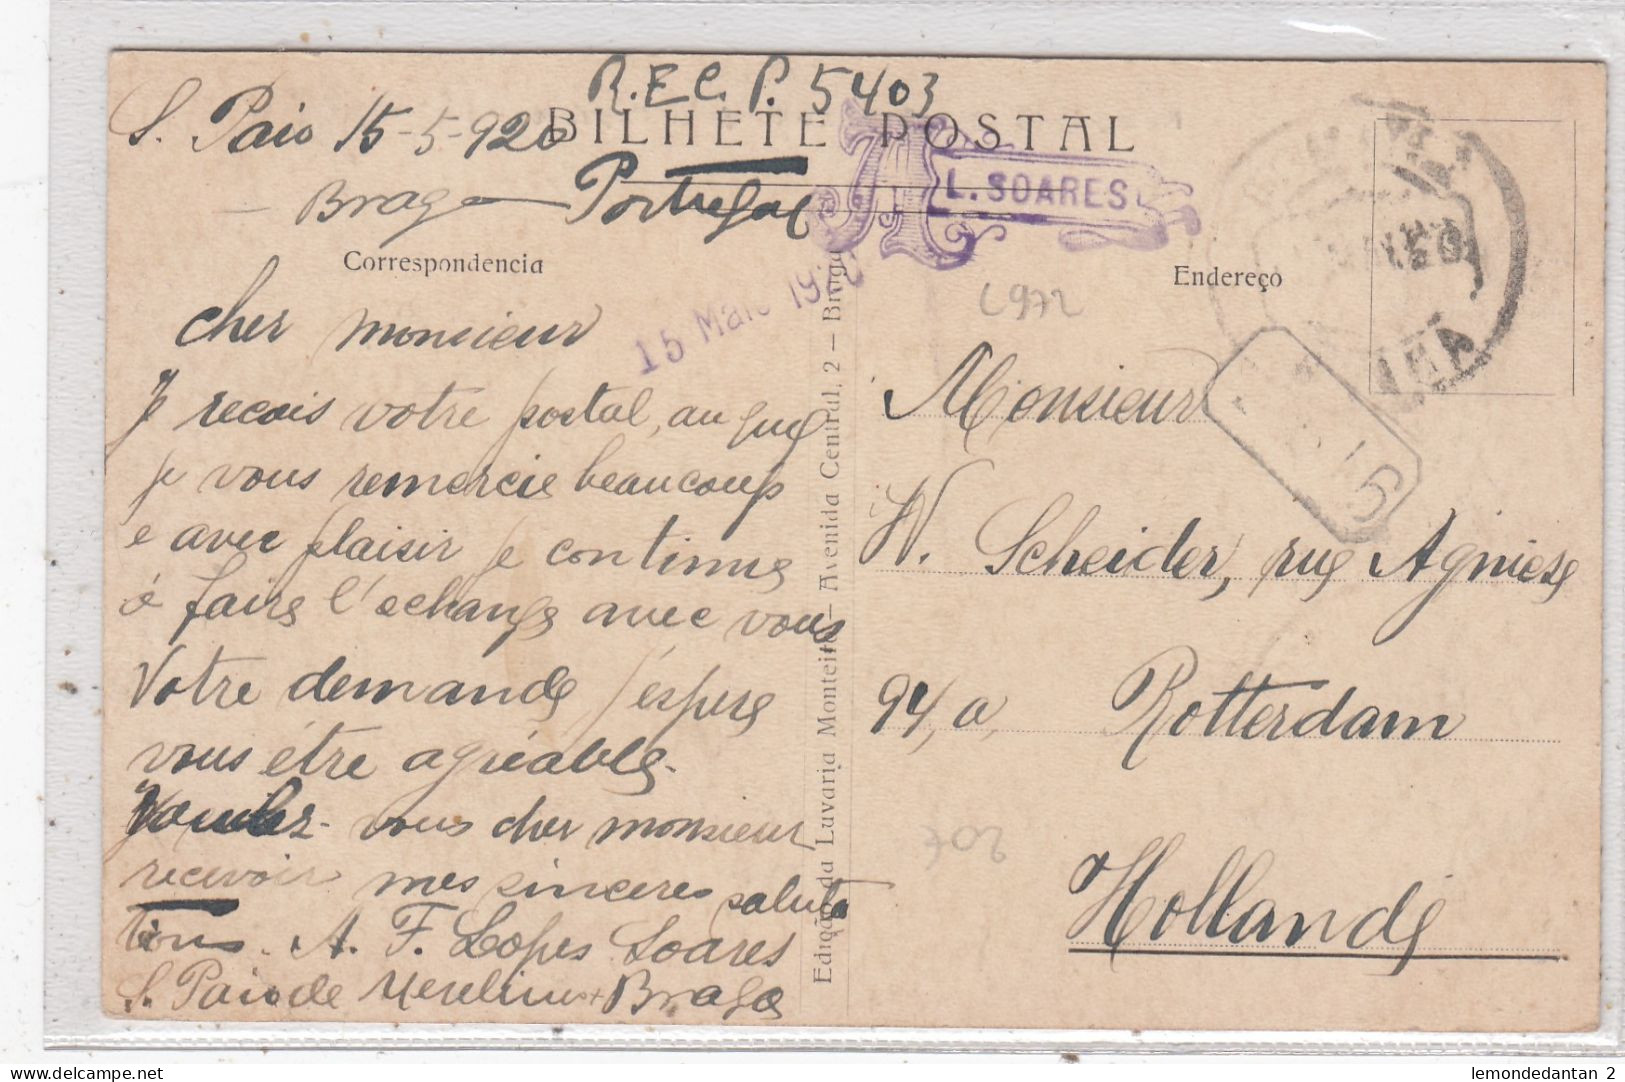 R.E.C. P. 5403
S. Paio 15-5-920
BILHETE POSTAL
Braga Portugal
L. SOARES
Correspondencia
Endereço
15 Maio 1920
C972
cher monsieur
Je recois votre postal, au que
je vous remercie beaucoup
e avec plaisir je continue
á faire l'echange avec vous
Votre demande j'espere
vous être agréable.
vous cher monsieur
recevoir mes sinceres saluta
tions. A. F. Lopes Soares
S. Paio de Merelim + Braga
Edição da Luvaria Monteiro — Avenida Central, 2 — Braga
Monsieur
W. Scheider, rue Agniese
94, a, Rotterdam
Hollande
20€
lemondedantan 2